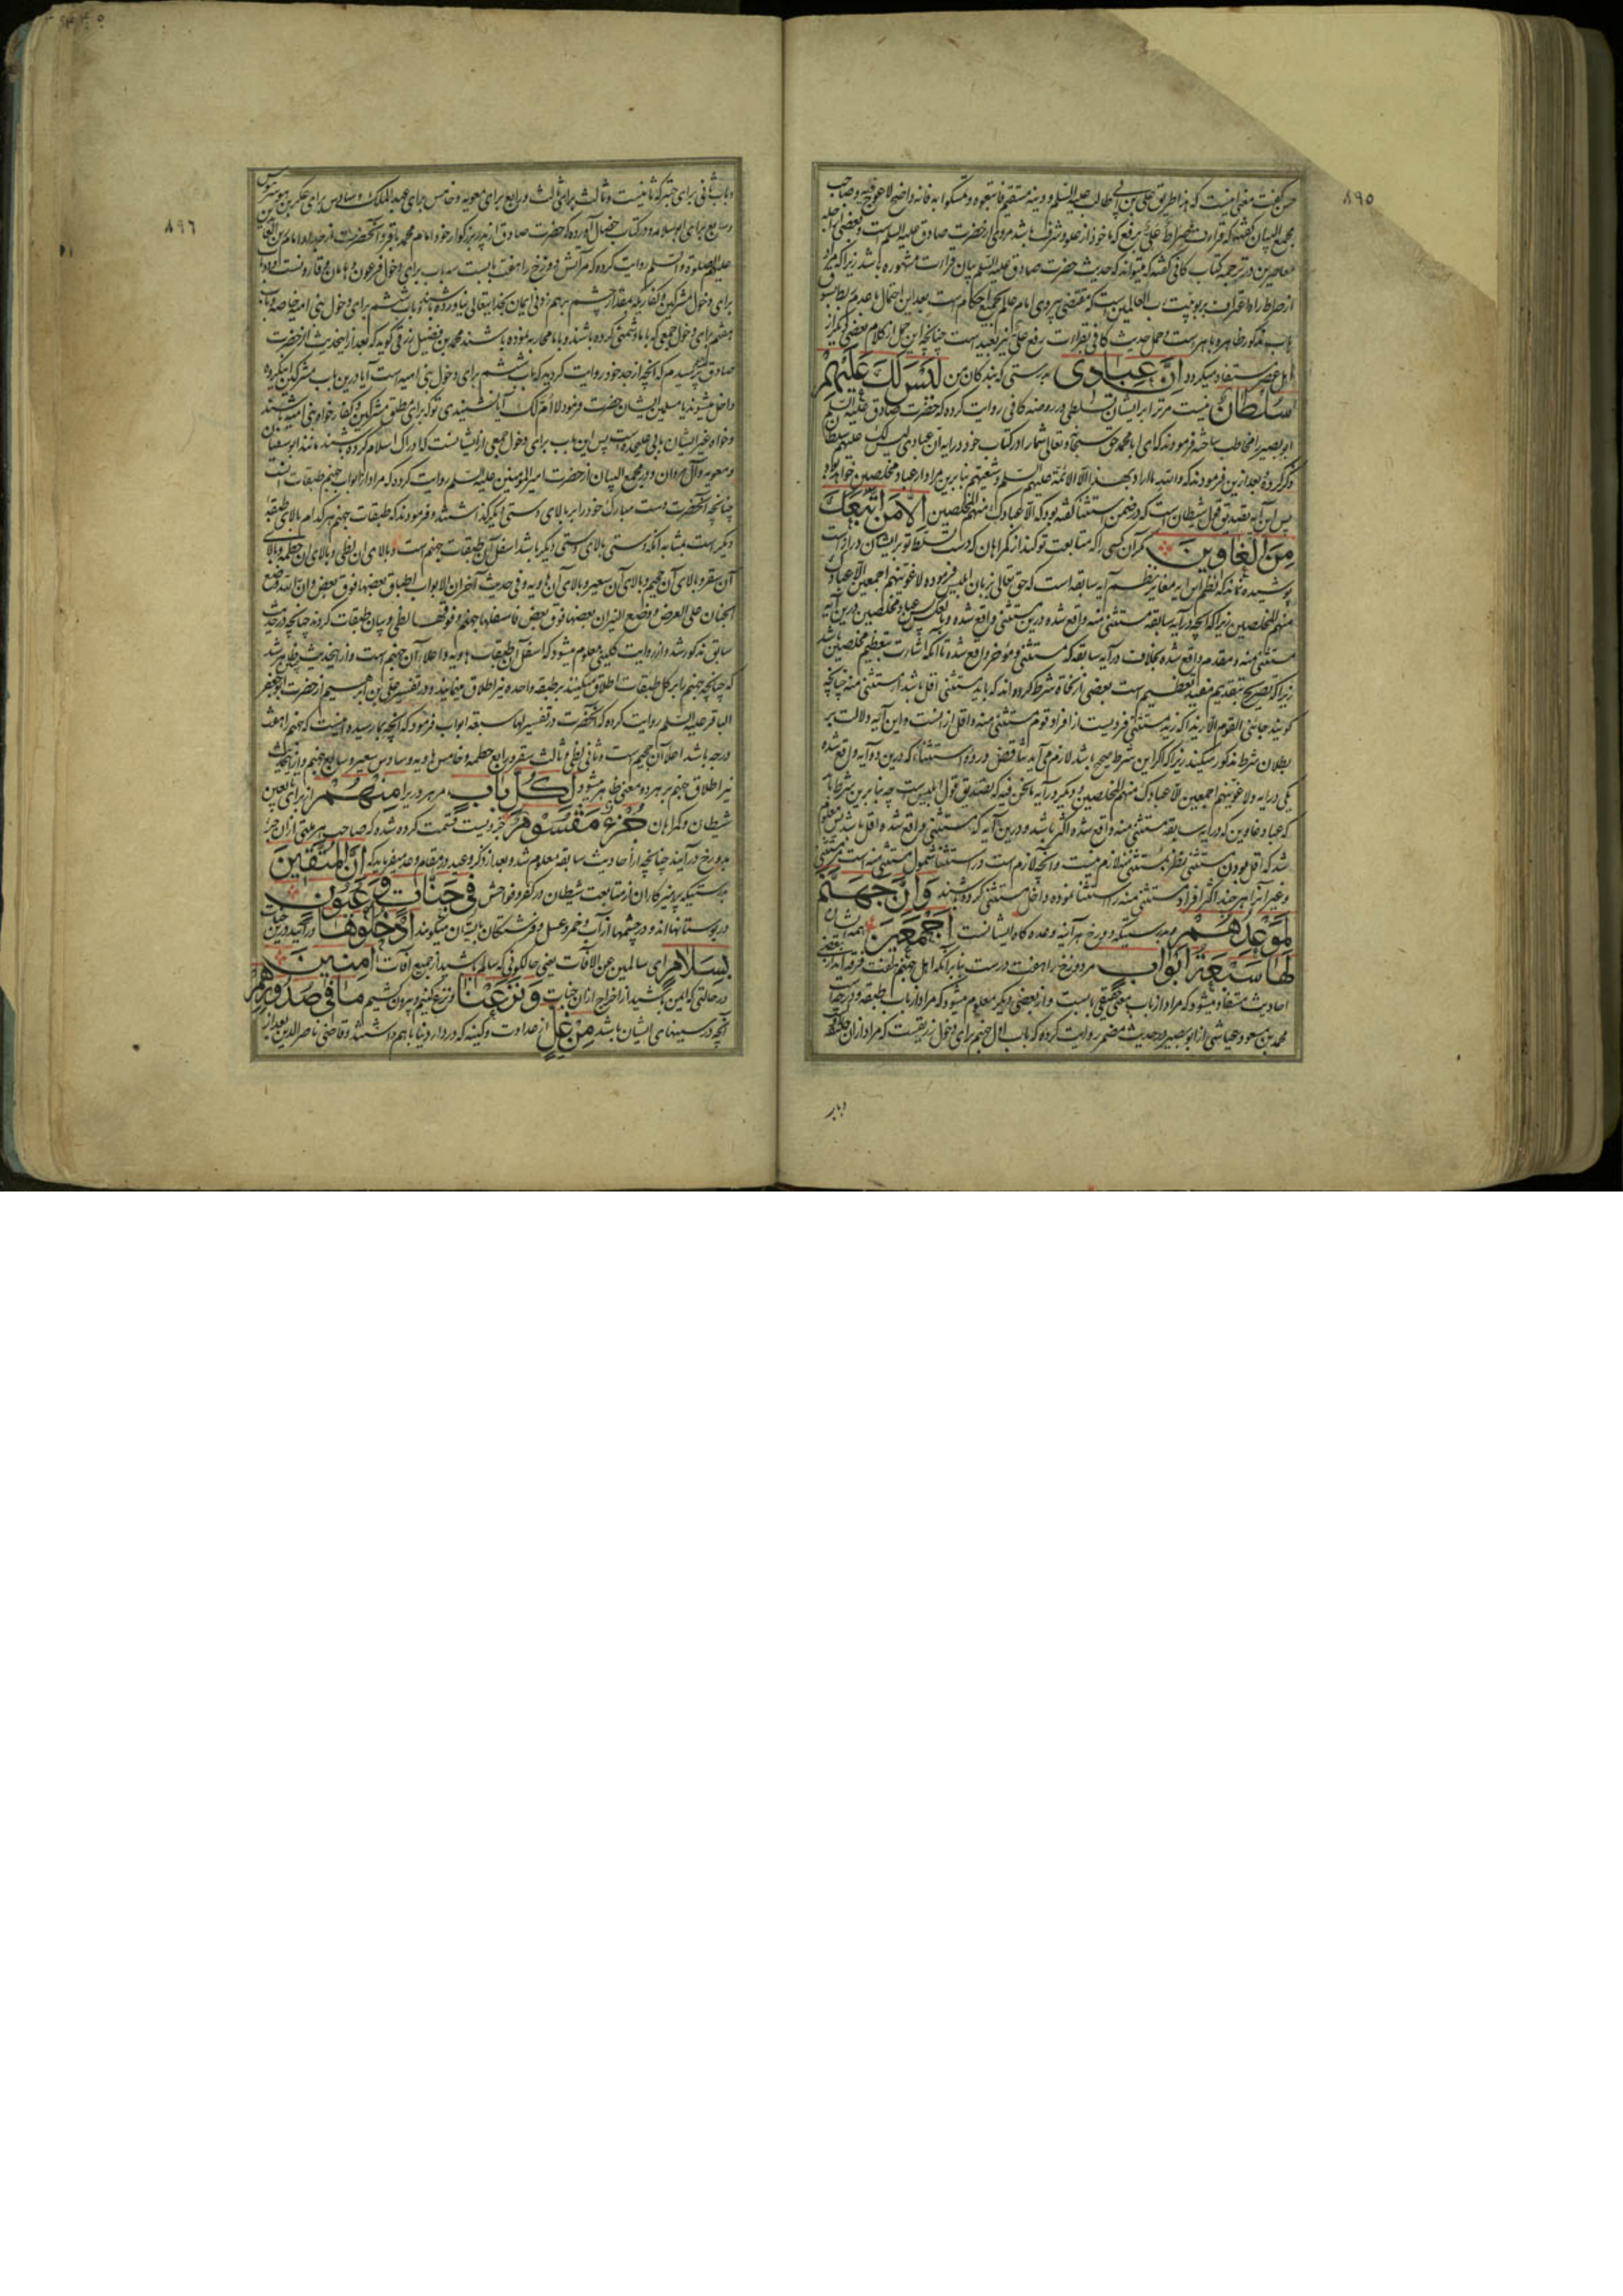 ٨٩٥
حسن گفت معنی اینست که هذا طریق علی بن ابی طالب علیه السلم و دینه مستقیم فاتبعوه و تمسکوا به فانه واضح لا عوج فیه و صاحب
مجمع البیان گفته که قراءت صراط علی برفع که ماخوذ از علو و شرف باشد مروی از حضرت صادق علیه السلم است و بعضی اجله
معاصرین در ترجمه کتاب کافی گفته که میتواند که حدیث حضرت صادق علیه السلم بیان قراءت مشهوره باشد زیرا که مراد
از صراط راه اعتراف بربوبیت رب العالمین است که مقتضی پیروی امام عالم بجمیع احکام است بعد این احتمال با عدم ربط بسوی
باب مذکور ظاهر و باهر است و حمل حدیث کافی بقراءت رفع علی نیز بعید است چنانچه این حمل از کلام بعضی دیگر از
اهل عصر مستفاد میگردد اِنَّ عِبَادِی بدرستی که بندکان من لَیْسَ لَكَ عَلَیْهِمْ
سُلْطَانٌ نیست مر ترا بر ایشان تسلطی در روضه کافی روایت کرده که حضرت صادق علیه السلم
ابو بصیر را مخاطب ساخته فرمودند که ای ابا محمد حق سبحانه و تعالی شما را در کتاب خود در آیه ان عبادی لیس لک علیهم سلطان
ذکر کرده بعد ازین فرمودند که والله ما اراد بهذا الا الائمة علیهم السلم و شیعتهم بنا برین مراد از عباد مخلصین خواهد بود
پس این آیه تصدیق قول شیطان است که در ضمن استثنا گفته بود که الا عبادک منهم المخلصین اِلَّا مَنِ اتَّبَعَكَ
مِنَ الْغَاوِینَ مگر آن کسی را که متابعت تو کند از گمراهان که درست تسلط تو بر ایشان در راه است
پوشیده نماند که نظم این آیه مغایر نظم آیه سابقه است که حق تعالی بزبان ابلیس فرموده لاغوینهم اجمعین الا عبادک
منهم المخلصین زیرا که آنچه در آیه سابقه مستثنی منه واقع شده درین مستثنی واقع شده و بالعکس پس عباد مخلصین درین آیه
مستثنی منه و مقدم واقع شده بخلاف در آیه سابقه که مستثنی و موخر واقع شده تا آنکه اشارت بتعظیم مخلصین باشد
زیرا که تصریح بتقدیم مفید تعظیم است بعضی از نحاة شرط کرده‌اند که باید مستثنی اقل باشد از مستثنی منه چنانچه
کویند جائنی القوم الا زیدا که زید مستثنی فردیست از افراد قوم مستثنی منه و اقل از انست و این آیه دلالت بر
بطلان شرط مذکور میکند زیرا که اگر این شرط صحیح باشد لازم می‌آید تناقض در دو استثنا که درین دو آیه واقع شده
یکی در آیه ولاغوینهم اجمعین الا عبادک منهم المخلصین و دیگر در آیه ما نحن فیه که تصدیق قول ابلیس است چه بنا برین شرط باید
که عباد غاوین که در آیه سابقه مستثنی منه واقع شده اکثر باشد و درین آیه که مستثنی واقع شده اقل باشد پس معلوم
شد که اقل بودن مستثنی نظر بمستثنی منه لازم نیست و آنچه لازم است در استثنا شمول مستثنی منه است مستثنی
و غیر آنرا هر چند اکثر افراد مستثنی منه را استثنا نموده و داخل مستثنی کرده باشند وَاِنَّ جَهَنَّمَ
لَمَوْعِدُهُمْ بدرستیکه دوزخ هر آینه وعده کاه ایشانست اَجْمَعِینَ همه ایشان
لَهَا سَبْعَةُ اَبْوَابٍ مر دوزخ را هفت درست بنا بر آنکه اهل جهنم هفت فرقه‌اند از بعضی
احادیث مستفاد میشود که مراد از باب معنی حقیقی بابست و از بعضی دیگر معلوم میشود که مراد از باب طبقه و درجه است
محمد بن مسعود عیاشی از ابو بصیر در حدیث مضمر روایت کرده که باب اول جهنم برای دخول زریقست که مراد از ان
و باب
٨٩٦
و باب ثانی برای حبتر که ثانیست و ثالث برای ثالث و رابع برای معویه و خامس برای عبد الملک و سادس برای عکر بن هوسر
و سابع برای ابو سلامه و در کتاب خصال آورده که حضرت صادق از پدر بزرکوار خود امام محمد باقر و آنحضرت از جد او امام زین العابدین
علیهم الصلوة والسلم روایت کرده که مر آتش دوزخ را هفت بابست سه باب برای دخول فرعون و هامان و قارونست و باب
برای دخول مشرکین و کفار یکه مقدار چشم بر هم زدنی ایمان بخدایتعالی نیاورده باشند و باب ششم برای دخول بنی امیه خاصه و باب
هفتم برای دخول جمعی که با ما دشمنی کرده باشند و با ما محاربه نموده باشند محمد بن فضیل زرقی کوید که بعد از اینحدیث از حضرت
صادق پرسیدم که آنچه از جد خود روایت کردید که باب ششم برای دخول بنی امیه است آیا درین باب مشرکین ایشان
داخل میشوند یا مسلمین ایشان حضرت فرمود لا ام لک آیا نشنیدی تو که برای مطلق مشرکین و کفار خواه بنی امیه باشند
و خواه غیر ایشان بابی علیحده است پس این باب برای دخول جمعی از ایشانست که ادراک اسلام کرده باشند مانند ابو سفیان
و معویه و آل مروان و در مجمع البیان از حضرت امیر المؤمنین علیه السلم روایت کرده که مراد از ابواب جهنم طبقات انست
چنانچه آنحضرت دست مبارک خود را بر بالای دستی دیگر کذاشتند و فرمودند که طبقات جهنم هر کدام بالای طبقه
دیگر است بمثابه آنکه دستی بالای دستی دیگر باشد اسفل آن طبقات جهنم است و بالای ان لظی و بالای ان حطمه و بالای
آن سقر و بالای آن جحیم و بالای آن سعیر و بالای آن هاویه و فی حدیث آخر ان الابواب اطباق بعضها فوق بعض و ان الله وضع
الجنان علی العرض و وضع النیران بعضها فوق بعض فاسفلها جهنم و فوقها لظی و بیان طبقات کردند چنانچه در حدیث
سابق مذکور شد و از روایت کلبینی معلوم میشود که اسفل آن طبقات هاویه و اعلا آن جهنم است و از اینحدیث ظاهر شد
که چنانچه جهنم را بر کل طبقات اطلاق میکنند بر طبقه واحده نیز اطلاق مینمایند و در تفسیر علی بن ابراهیم از حضرت ابو جعفر
الباقر علیه السلم روایت کرده که آنحضرت در تفسیر لها سبعة ابواب فرمود که آنچه بما رسیده اینست که جهنم را هفت
درجه باشد اعلا آن جحیم است و ثانی لظی و ثالث سقر و رابع حطمه و خامس هاویه و سادس سعیر و سابع جهنم و از اینحدیث
نیز اطلاق جهنم بر هر دو معنی ظاهر میشود لِكُلِّ بَابٍ مر هر دری را مِنْهُمْ از برای تابعین
شیطان و گمراهان جُزْءٌ مَقْسُومٌ جزویست قسمت کرده شده که صاحب هر ملتی از ان جزء
بدوزخ در آیند چنانچه از احادیث سابقه معلوم شد و بعد از ذکر وعید در مقام وعد میفرماید که اِنَّ الْمُتَّقِینَ
بدرستیکه پرهیزکاران از متابعت شیطان در کفر و فواحش فِی جَنَّاتٍ وَعُیُونٍ
در بوستانهااند و در چشمها از آب و خمر و عسل و فرشتکان بایشان میکویند اُدْخُلُوهَا در آئید درین جنات
بِسَلَامٍ ای سالمین عن الآفات یعنی حالکونی که سالم باشید از جمیع آفات اٰمِنِینَ
در حالتی که ایمن باشید از اخراج از ان جنات وَنَزَعْنَا و نزع کنیم و بیرون کشیم مَا فِی صُدُورِهِمْ
آنچه در سینهای ایشان باشد مِنْ غِلٍّ از عداوت و کینه که در دار دنیا با هم داشتند و قاضی ناصر الدین بعد از